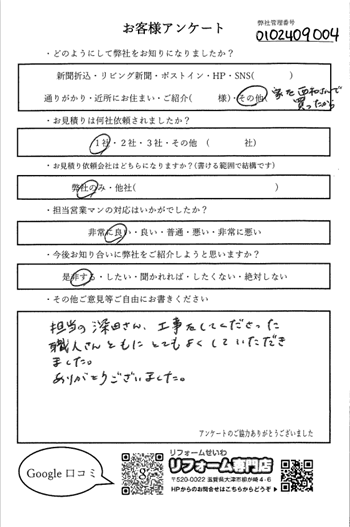 お客様アンケート
弊社管理番号
0102409004
・どのようにして弊社をお知りになりましたか?
新聞折込・リビング新聞・ポストイン・HP・SNS( )
通りがかり・近所にお住まい・ご紹介( 様)・その他( 家を西和さんで
買ったから
・お見積りは何社依頼されましたか?
1社・2社・3社・その他 ( 社)
・お見積り依頼会社はどちらになりますか?(書ける範囲で結構です)
弊社のみ・他社( )
・担当営業マンの対応はいかがでしたか?
非常に良い・良い・普通・悪い・非常に悪い
・今後お知り合いに弊社をご紹介しようと思いますか?
是非する・したい・聞かれれば・したくない・絶対しない
・その他ご意見等ご自由にお書きください
担当の深田さん、工事をしてくださった
職人さんともにとてもよくしていただき
ました。
ありがとうございました。
アンケートのご協力ありがとうございました
Google 口コミ
リフォームせいわ
リフォーム専門店
〒520-0022 滋賀県大津市柳が崎4-6
HPからのお問合せはこちらからどうぞ